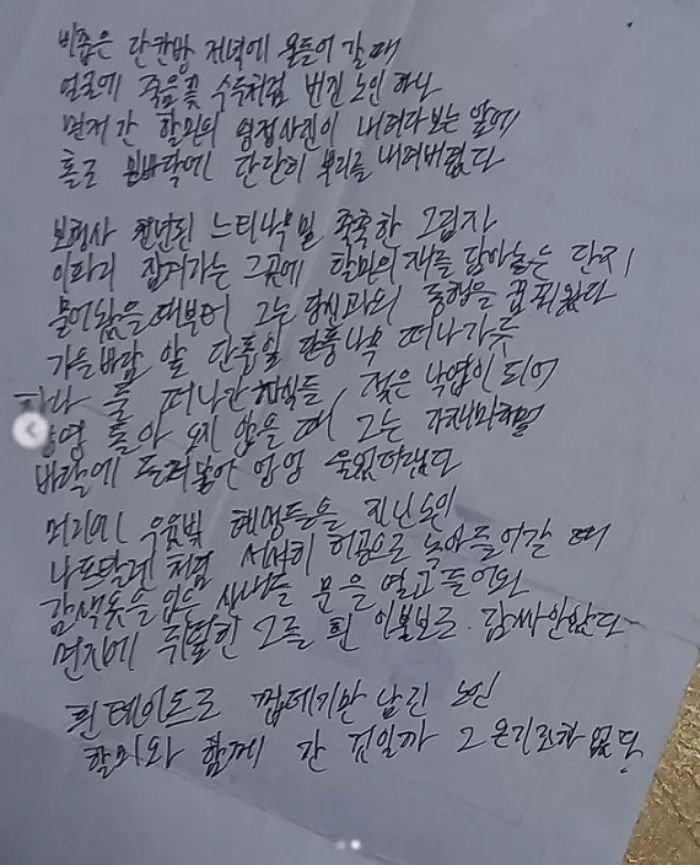 비좁은 단칸방 저녁에 움틀어 갈 때
얼굴에 죽음꽃 수두처럼 번진 노인 하나
먼저 간 할머의 영정사진이 내려다보는 앞에
홀로 밑바닥에 단단히 뿌리를 내려버렸다
보행사 천년된 느티나무 밑 축축한 그림자
이파리 잠겨가는 그곳에 할머의 재를 담아놓은 단지
묻어놨을 때부터 그는 당신과의 동행을 꿈꿔왔다
가을바람 앞 단풍잎 단풍나무 떠나가듯
하나 둘 떠나간 자식들, 젖은 낙엽이 되어
돌아 오지 않을 때 그는
바람에 들러붙어 엉엉 울었더랬다
머리에 우윳빛 혜성들을 지닌 노인
나프탈렌 처럼 서서히 허공으로 녹아들어갈 때
감색옷을 입은 사내들 문을 열고 들어와
먼지에 뒤덮힌 그를 흰 이불보로 감싸안았다
흰 테이프로 껍데기만 남긴 노인
할머와 함께 간 것일까 그 온기조차 없다.